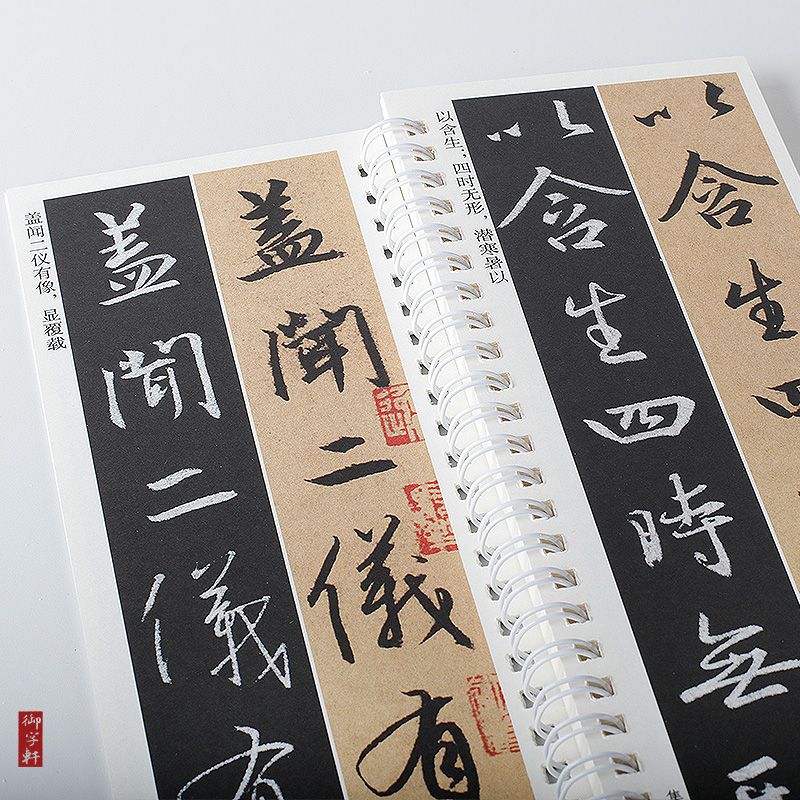 盖闻二仪有像，显覆载
盖闻二儀有
盖闻二儀有
以含生；四时无形，潜寒暑以
以含生四時無形
以含生四
集
御字軒